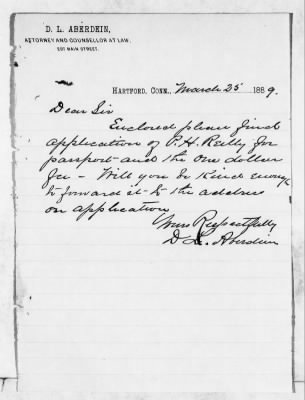 D. L. ABERDEIN,
ATTORNEY AND COUNSELLOR AT LAW,
HARTFORD, CONN., March 25 1889.
Dear Sir
Enclosed please find
application of P. H. Reilly for
passport and the one dollar
fee - Will you be kind enough
to forward it to the address
on application
Yours Respectfully
D. L. Aberdein